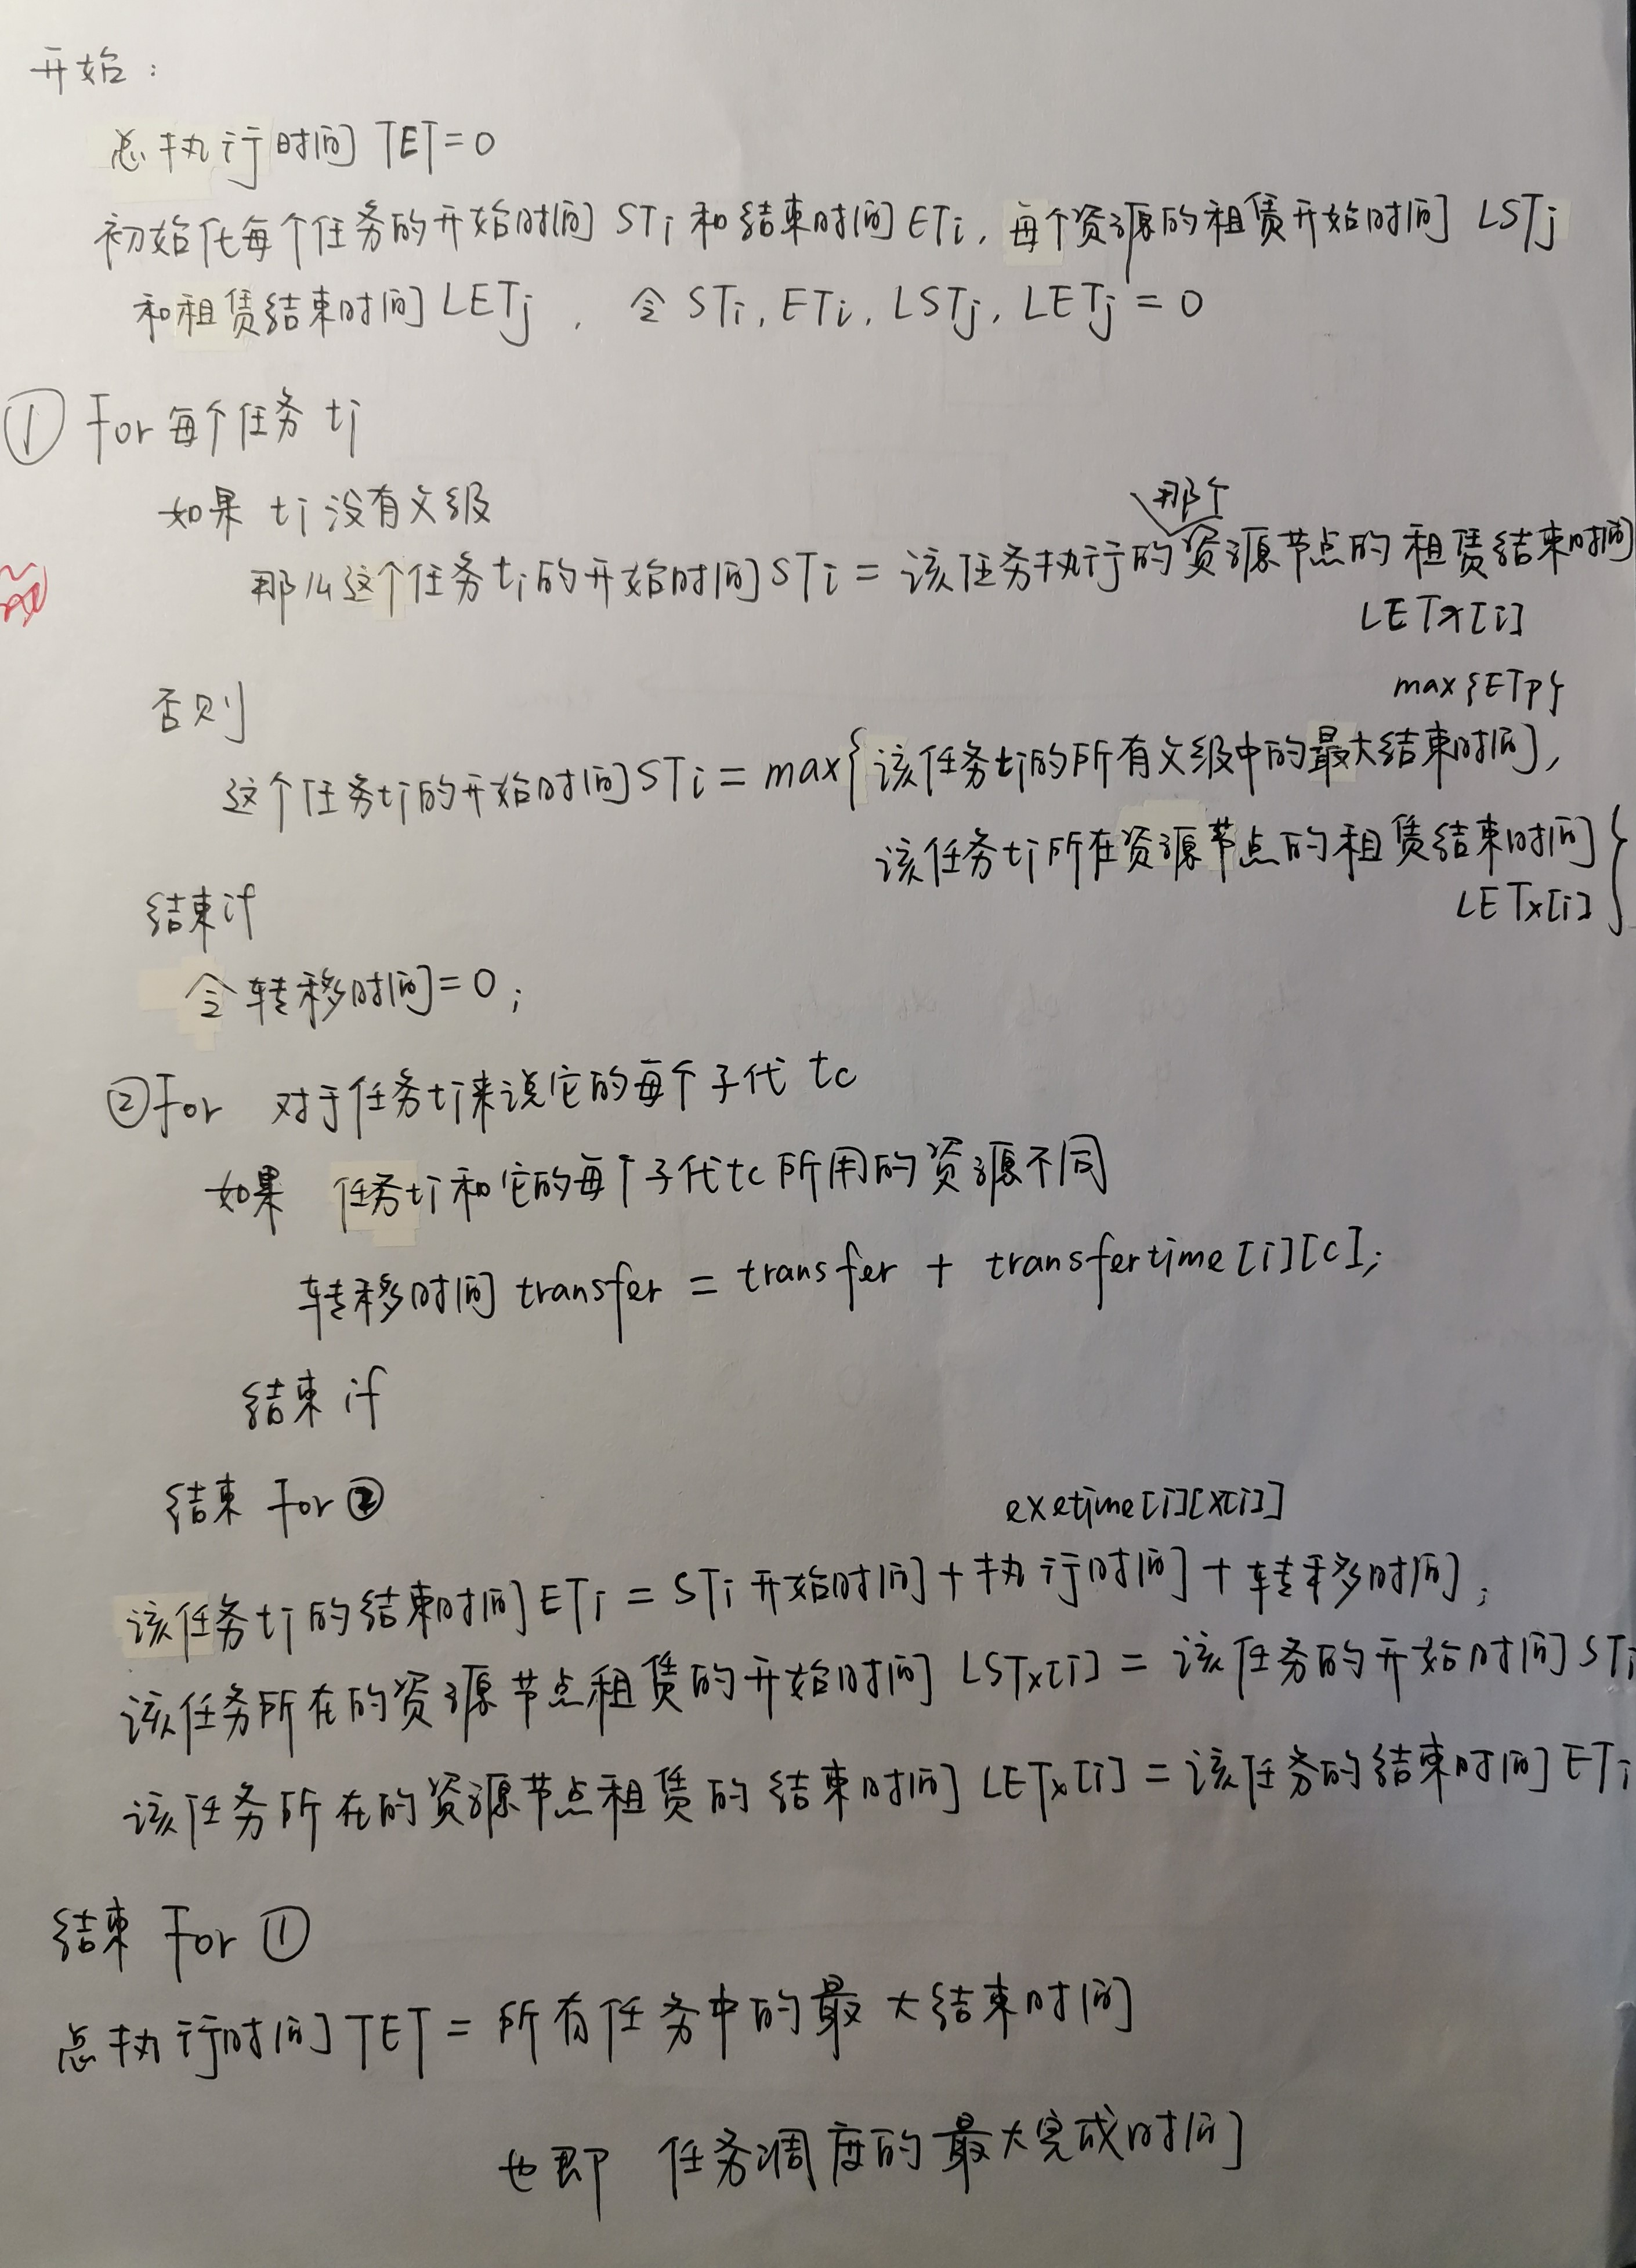 开始：
总执行时间TET=0
初始化每个任务的开始时间STi和结束时间ETi，每个资源的租赁开始时间 LSTj
和租赁结束时间LETj ， 令 STi, ETi, LSTj, LETj = 0
① For 每个任务 ti
如果 ti 没有父级
那个
那么这个任务ti的开始时间STi = 该任务执行的资源节点的租赁结束时间
LETx[i]
max{ETp}
否则
这个任务ti的开始时间STi = max{该任务ti的所有父级中的最大结束时间,
该任务ti所在资源节点的租赁结束时间}
LETx[i]
结束if
令转移时间=0;
②For 对于任务ti来说它的每个子代 tc
如果 任务ti和它的每个子代tc所用的资源不同
转移时间 transfer = transfer + transfertime[i][c];
结束 if
结束 For ②
exetime[i][x[i]]
该任务ti的结束时间ETi = STi 开始时间+执行时间+转移时间;
该任务所在的资源节点租赁的开始时间 LSTx[i] = 该任务的开始时间STi
该任务所在的资源节点租赁的结束时间 LETx[i] = 该任务的结束时间ETi
结束 For ①
总执行时间TET = 所有任务中的最大结束时间
也即 任务调度的最大完成时间